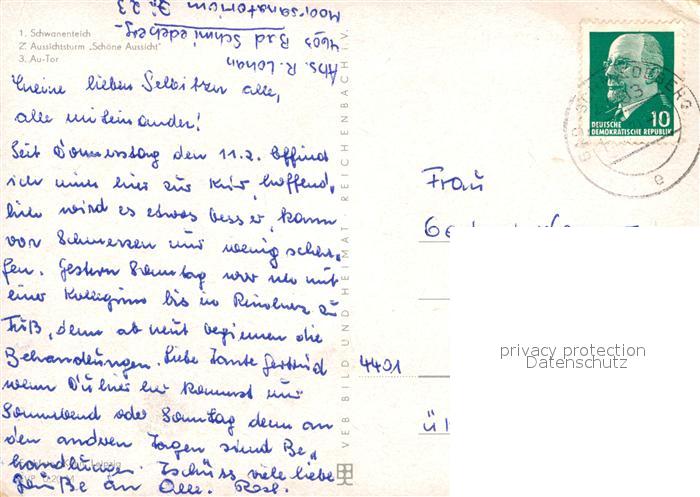 1. Schwanenteich
2. Aussichtsturm „Schöne Aussicht"
3. Au-Tor
Abs. R. Lohan
4603 Bad Schmiedeberg
Moorsanatorium Zi. 23
Meine lieben Selbitzer alle,
alle miteinander!
Seit Donnerstag den 11.2. befind
ich mich hier zur Kur, hoffend,
hier wird es etwas besser, kann
vor Schmerzen nur wenig schla-
fen. Gestern Sonntag war ich mit
einer Kollegin bis in Reinharz zu
Fuß, denn ab heut beginnen die
Behandlungen. Liebe Tante Gertrud
wenn Du hier her kommst nur
Sonnabend oder Sonntag denn an
den anderen Tagen sind Be„
handlungen. Tschüss viele liebe
Grüße an Alle. Rosl.
VEB BILD UND HEIMAT · REICHENBACH I. V.
DEUTSCHE
DEMOKRATISCHE REPUBLIK
10
e
Frau
4401
privacy protection
Datenschutz